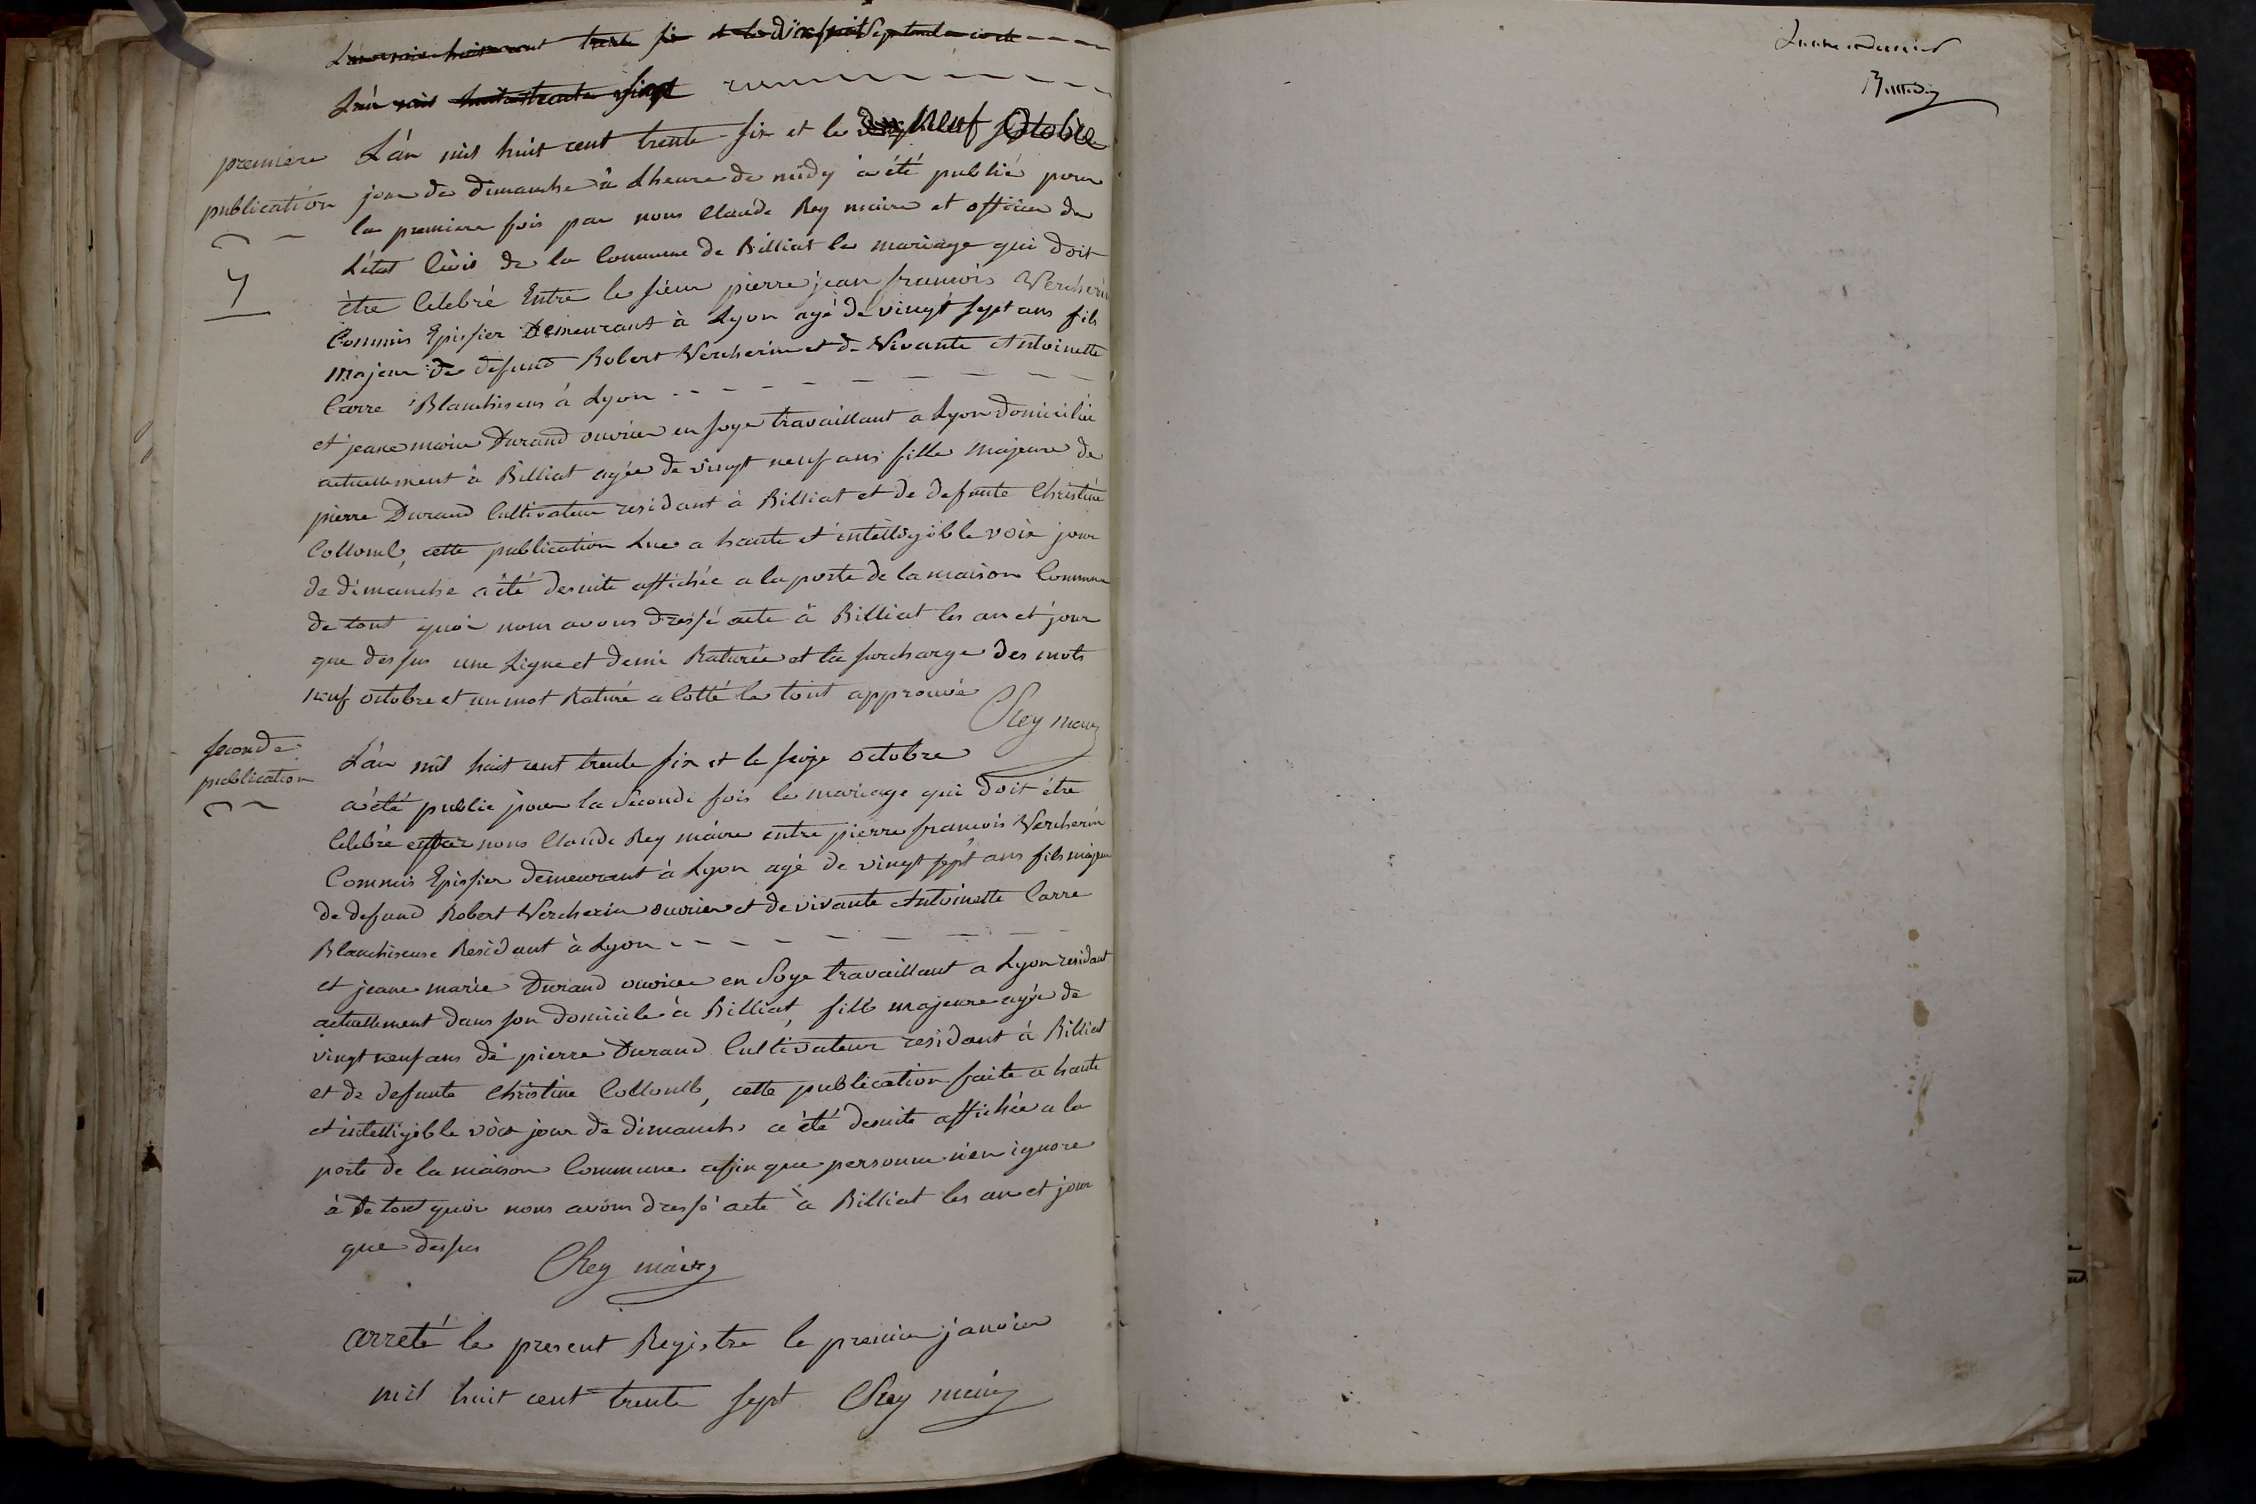 L'an mil huit cent trente six et le dix huit Septembre
L'an mil huit cent trente six
première
publication
7
L'an mil huit cent trente-six et le neuf Octobre
jour de dimanche à L'heure de midy à été publié pour
la premiere fois par nous Claude Rey maire et officier de
L'état Civil de la Commune de Billiat le mariage qui doit
être Celebré Entre le sieur pierre jean francois Vercherin
Commis Epissier Demeurant à Lyon agé de vingt sept ans fils
majeur de defund Robert Vercherin et de Vivante Antoinette
Carre Blanchiseus à Lyon
et jeane marie Durand ouvrier en soye travaillant a Lyon domiciliée
actuellement à Billiat agée de vingt neuf ans fille Majeure de
pierre Durand Cultivateur residant à Billiat et de defunte Christine
Collomb, cette publication Lue a haute et intelligible voix jour
de dimanche a été desuite affichée a la porte de la maison Commune
de tout quoi nous avons dressé acte à Billiat les an et jour
que dessus une Ligne et demie Raturée et la surcharge des mots
neuf octobre et un mot Raturé a Cotté le tout approuvé
CRey maire
seconde
publication
L'an mil huit cent trente six et le seize octobre
a été publié pour la Seconde fois le mariage qui doit être
Celebré par nous Claude Rey maire entre pierre francois Vercherin
Commis Epissier demeurant à Lyon agé de vingt sept ans fils majeur
de defund Robert Vercherin ouvrier et de vivante Antoinette Carre
Blanchiseuse Residant à Lyon
et jeane marie Durand ouvrier en Soye travaillant a Lyon residant
actuellement dans son domicile à Billiat, fille majeure agée de
vingt neuf ans de pierre Durand Cultivateur residant à Billiat
et de defunte Christine Collomb, cette publication faite a haute
et intelligible voix jour de dimanche a été desuite affichée a la
porte de la maison Commune afin que personne n'en ignore
à De tout quoi nous avons dressé acte à Billiat les an et jour
que dessus
CRey maire
arreté le present Registre le premier janvier
mil huit cent trente sept CRey maire